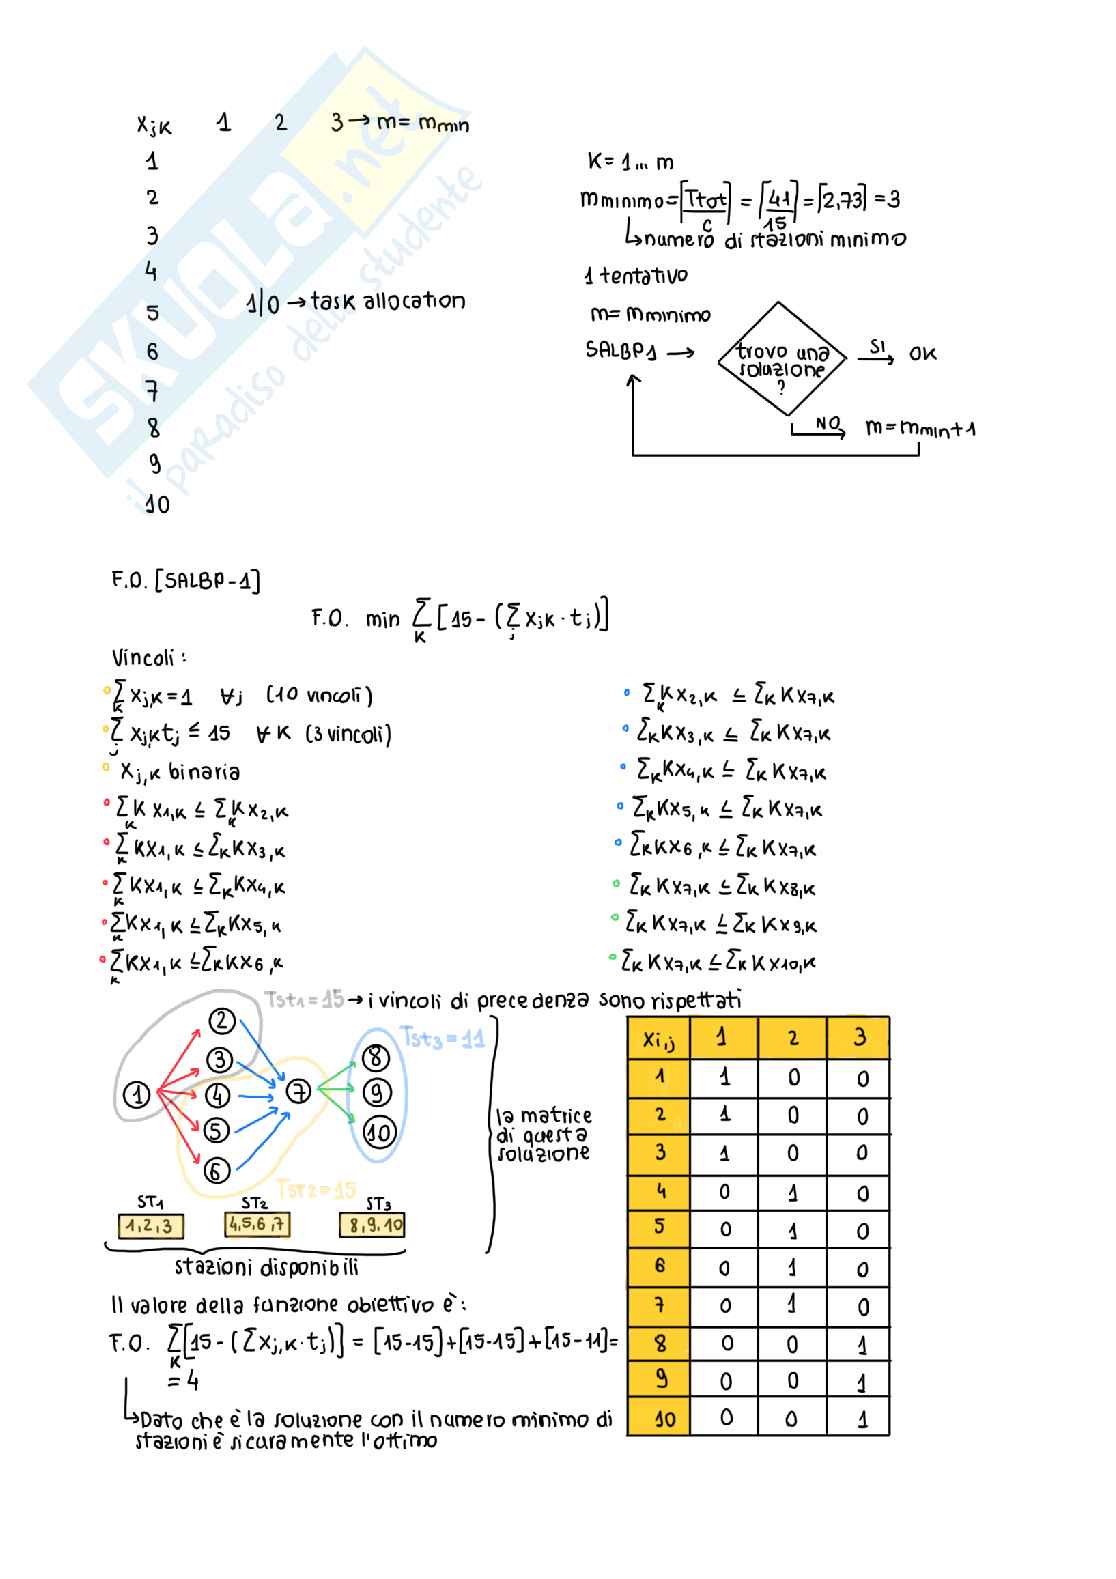 xjk 1 2 3 → m = mmin
1
2
3
4
5
6
7
8
9
10
1|0 → task allocation
K = 1... m
mminimo = ⌈Ttot/c⌉ = ⌈41/15⌉ = ⌈2,73⌉ = 3
↳ numero di stazioni minimo
1 tentativo
m = mminimo
SALBP1 →
trovo una
soluzione
?
SI
OK
NO
m = mmin + 1
SKUOLA.net
il paradiso dello studente
F.O. [SALBP-1]
F.O. min ∑K [15 - (∑j xjK · tj)]
Vincoli:
∑K xj,K = 1 ∀j (10 vincoli)
∑j xj,K tj ≤ 15 ∀K (3 vincoli)
xj,K binaria
∑K K x1,K ≤ ∑K K x2,K
∑K K x1,K ≤ ∑K K x3,K
∑K K x1,K ≤ ∑K K x4,K
∑K K x1,K ≤ ∑K K x5,K
∑K K x1,K ≤ ∑K K x6,K
∑K K x2,K ≤ ∑K K x7,K
∑K K x3,K ≤ ∑K K x7,K
∑K K x4,K ≤ ∑K K x7,K
∑K K x5,K ≤ ∑K K x7,K
∑K K x6,K ≤ ∑K K x7,K
∑K K x7,K ≤ ∑K K x8,K
∑K K x7,K ≤ ∑K K x9,K
∑K K x7,K ≤ ∑K K x10,K
Tst1 = 15 → i vincoli di precedenza sono rispettati
1
2
3
4
5
6
7
8
9
10
Tst3 = 11
Tst2 = 15
ST1 ST2 ST3
1,2,3 4,5,6,7 8,9,10
stazioni disponibili
la matrice
di questa
soluzione
xi,j 1 2 3
1 1 0 0
2 1 0 0
3 1 0 0
4 0 1 0
5 0 1 0
6 0 1 0
7 0 1 0
8 0 0 1
9 0 0 1
10 0 0 1
Il valore della funzione obiettivo è:
F.O. ∑K [15 - (∑xj,K · tj)] = [15-15] + [15-15] + [15-11] =
= 4
↳ Dato che è la soluzione con il numero minimo di
stazioni è sicuramente l'ottimo